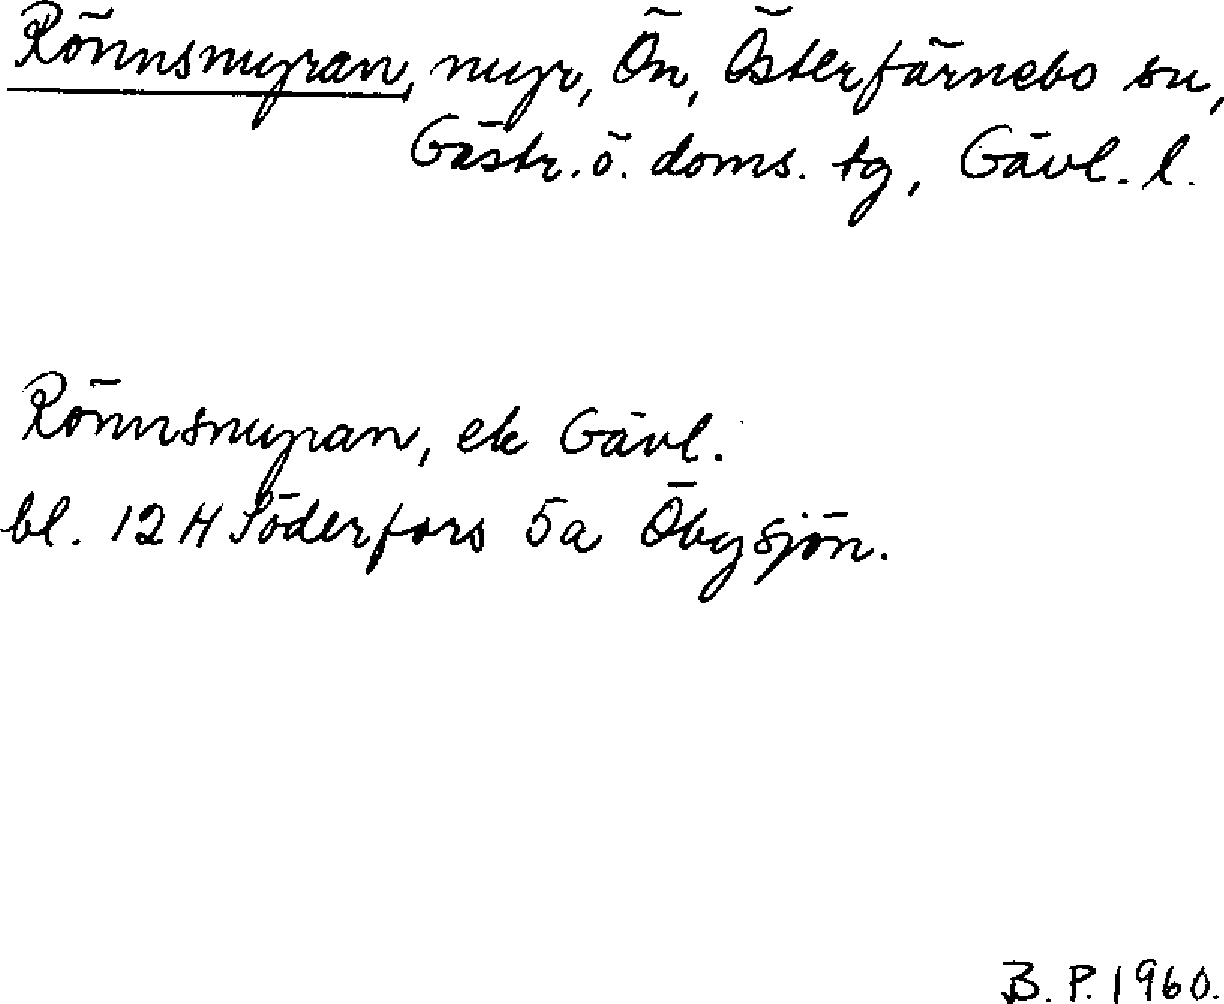 Rönnsmyran, myr, Ön, Österfärnebo sn,
Gästr. ö. doms. tg, Gävl. l.
Rönnsmyran, ek Gävl.
bl. 12 H Söderfors 5a Öbysjön.
B. P. 1960.